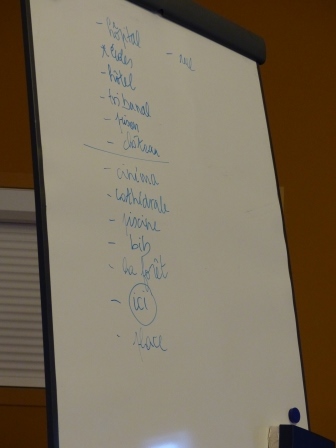 - hôpital
* Écoles
- rue
- hôtel
- tribunal
- prison
- château
- cinéma
- cathédrale
- piscine
- bib
- la forêt
- ici
- place